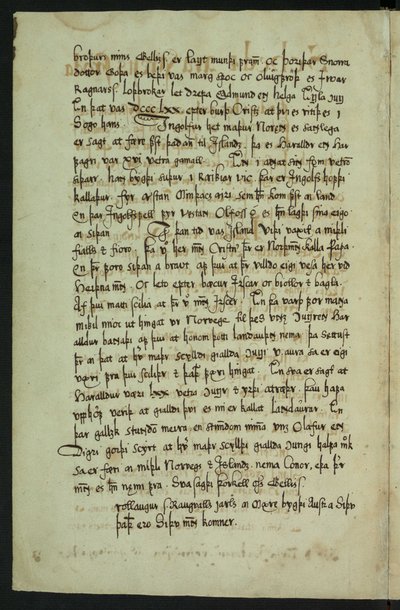 broþurs mins Gellis, er langt munþi fram. oc Þoriþar Snorra
dottor Goþa es beþi vas marg spoc oc Olivgfroþ, es Ivar
Ragnarss. loþbrokar let drepa Eadmund en helga Engla kgg
En þat vas dccc lxx. epter burþ Cristz at þvi es ritiþ es i
Sogo hans. Ingolfur het maþur Noren es sanlega
er sagt at færi fyrst þaþan til Islandz, þa es Haralldr en Har
fagri var xvi vetra gamall. En i annat sinn fam vetrom
siþarr. han bygþi suþur i Reikiar vic. þar er Ingolfs hofþi
kallaþur, fyr austan Minþacs eyri sem hann kom fyst a land.
en þar Ingolfsfell fyr vestan Olfoss a es hann lagþi sina eigo
a siþan. I þan tid vas Island viþi vaxit a miþli
fialls & fioro. þa v her menn Cristner þeir er Norþmenn kalla Papa.
en þeir foro siþan a bravt, af þvi at þeir villdo eigi vesa her viþ
Heiþna menn. oc leto epter bæcur Irscar oc biollor & bagla.
Af þvi matti scilia at þeir v menn Irscer. En þa varþ for maña
mikil mioc ut hingat ur Norvege til þess unz kgrenn Har
alldur bañaþi af þvi at honom þotti landauþn nema. þa sættust
þeir a þat at hver maþr scylldi giallda kgi v. aura sa er eigi
væri fra þvi scilidr & þaþan færi hingat. En sva er sagt at
Haralldur væri lxx vetra kgr & yrþi atrøþr. þau hafa
upphof veriþ at gialldi þvi es nu er kallat landaurar. En
þar gallzk stundo meira en stundom minna unz Olafur en
Digri gorþi scyrt at hver maþr scylldi giallda kgi halfa mork
sa er færi a miþli Norvegs & Islandz. nema Conor, eþa þeir
menn es hann næmi fra. Sva sagþi þorkell oss Gellisson.
rollaugur s. Raugvallz jarls a Mære bygþi Austr a Siþu
þaþan ero Siþu menn komner.